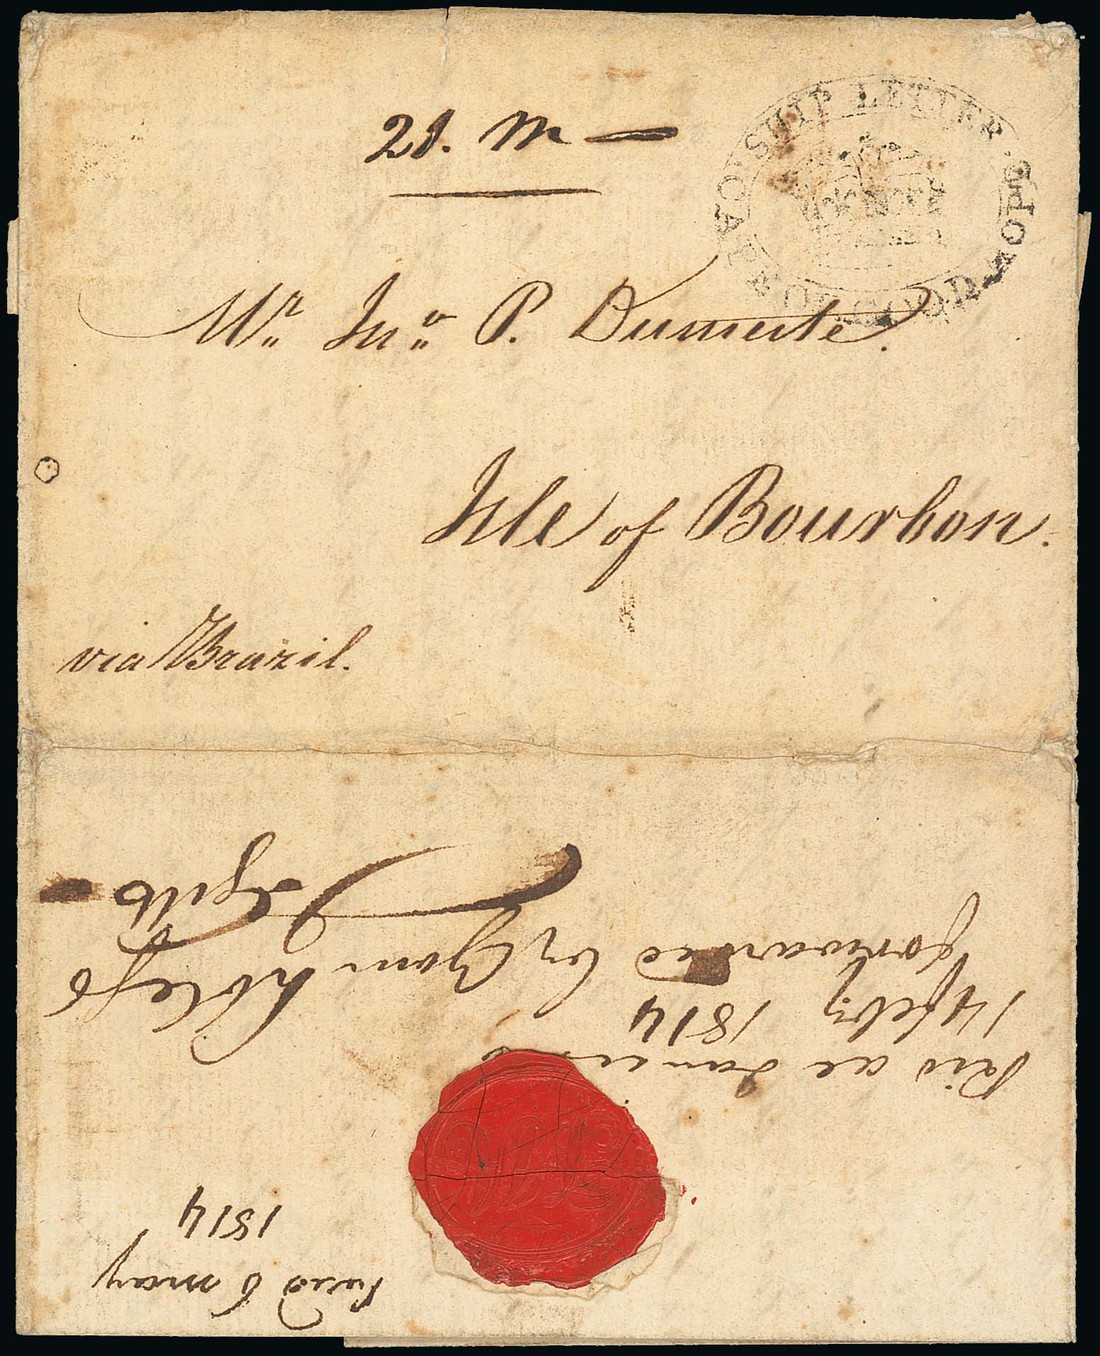 SHIP LETTER
CAPE OF GOOD HOPE
Mr Jno P. Dumeste.
Isle of Bourbon.
via Brazil.
Rio de Janeiro
14 feby 1814
forwarded by Your
Recd 6 may
1814